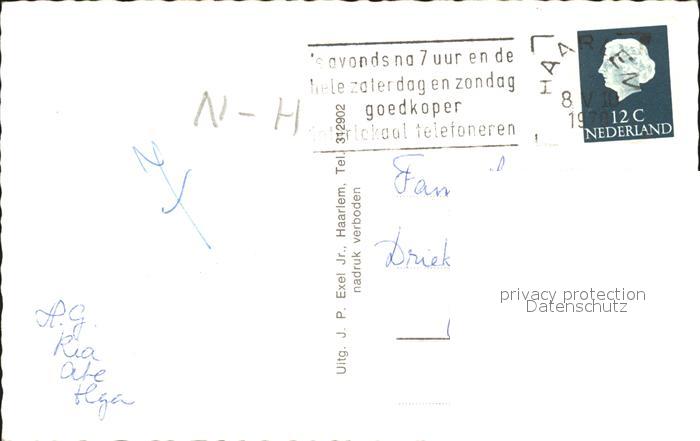 's avonds na 7 uur en de
hele zaterdag en zondag
goedkoper
interlokaal telefoneren
HAARLEM
8 V 18
1970
12 C
NEDERLAND
N-H
Uitg. J. P. Exel Jr., Haarlem, Tel. 312902
nadruk verboden
Fam
Driek
privacy protection
Datenschutz
A.G.
Ria
Ate
Olga